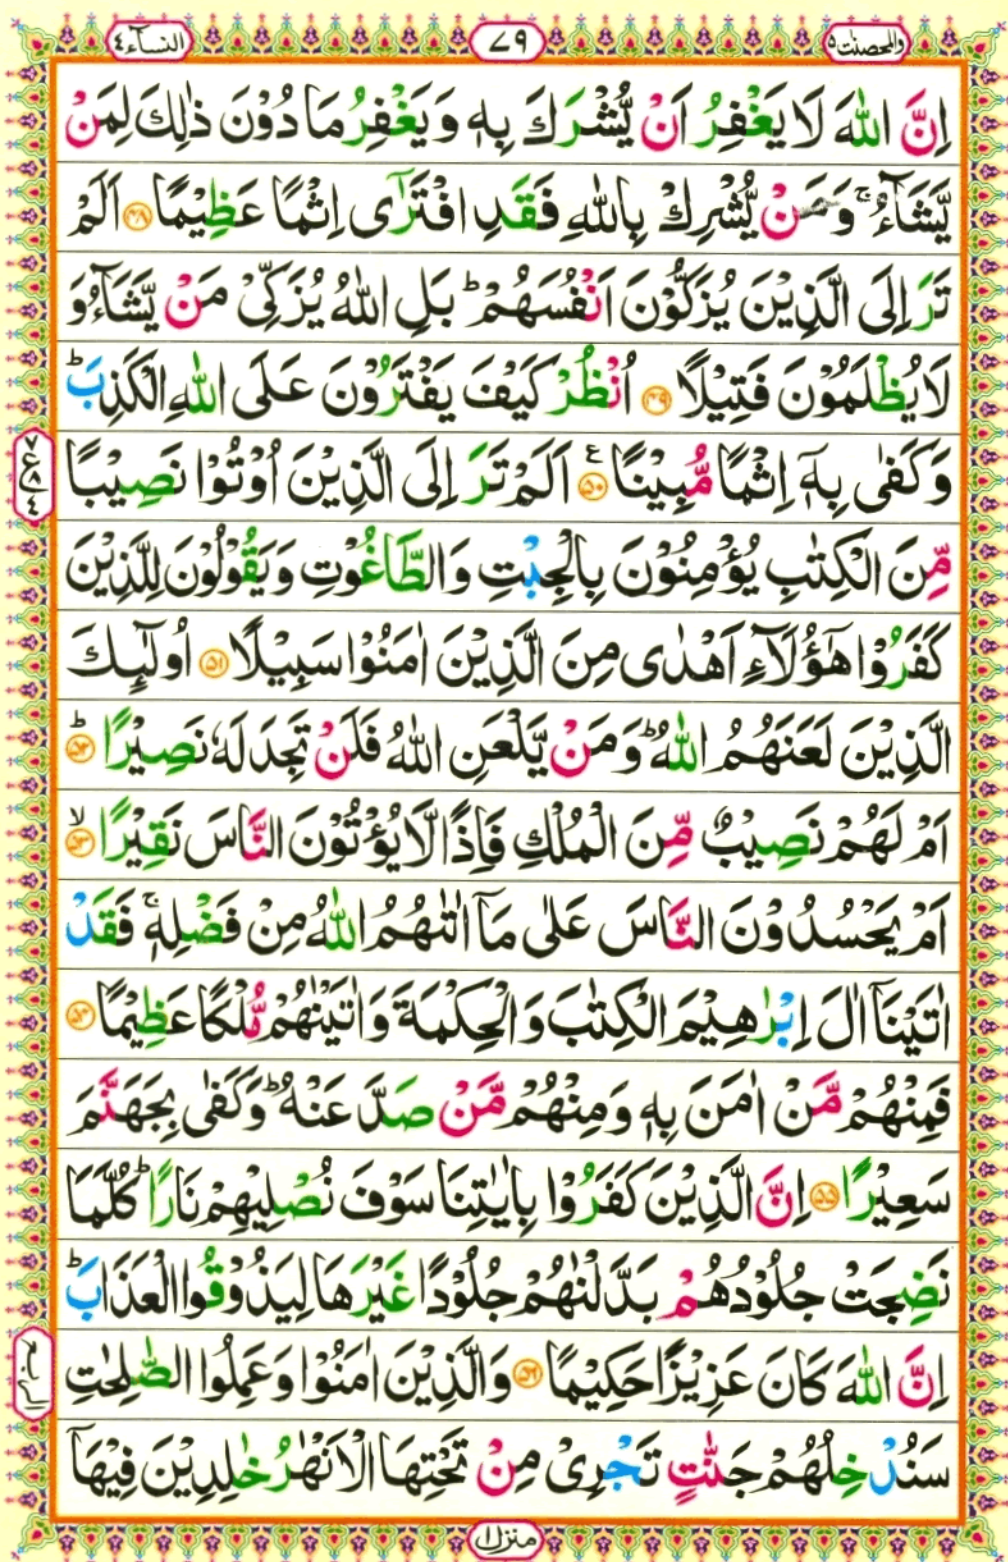 والمحصنٰت ٥
٧٩
النسآء ٤
اِنَّ اللّٰهَ لَا يَغْفِرُ اَنْ يُّشْرَكَ بِهٖ وَيَغْفِرُ مَا دُوْنَ ذٰلِكَ لِمَنْ
يَّشَآءُ ۚ وَمَنْ يُّشْرِكْ بِاللّٰهِ فَقَدِ افْتَرٰٓى اِثْمًا عَظِيْمًا ﴿۴۸﴾ اَلَمْ
تَرَ اِلَى الَّذِيْنَ يُزَكُّوْنَ اَنْفُسَهُمْ ؕ بَلِ اللّٰهُ يُزَكِّيْ مَنْ يَّشَآءُ وَ
لَا يُظْلَمُوْنَ فَتِيْلًا ﴿۴۹﴾ اُنْظُرْ كَيْفَ يَفْتَرُوْنَ عَلَى اللّٰهِ الْكَذِبَ ؕ
وَكَفٰى بِهٖٓ اِثْمًا مُّبِيْنًا ﴿۵۰﴾ ع اَلَمْ تَرَ اِلَى الَّذِيْنَ اُوْتُوْا نَصِيْبًا
٧ ع ٨ ٤
مِّنَ الْكِتٰبِ يُؤْمِنُوْنَ بِالْجِبْتِ وَالطَّاغُوْتِ وَيَقُوْلُوْنَ لِلَّذِيْنَ
كَفَرُوْا هٰٓؤُلَآءِ اَهْدٰى مِنَ الَّذِيْنَ اٰمَنُوْا سَبِيْلًا ﴿۵۱﴾ اُولٰٓئِكَ
الَّذِيْنَ لَعَنَهُمُ اللّٰهُ ؕ وَمَنْ يَّلْعَنِ اللّٰهُ فَلَنْ تَجِدَ لَهٗ نَصِيْرًا ﴿۵۲﴾ؕ
اَمْ لَهُمْ نَصِيْبٌ مِّنَ الْمُلْكِ فَاِذًا لَّا يُؤْتُوْنَ النَّاسَ نَقِيْرًا ﴿۵۳﴾ۙ
اَمْ يَحْسُدُوْنَ النَّاسَ عَلٰى مَآ اٰتٰىهُمُ اللّٰهُ مِنْ فَضْلِهٖ ۚ فَقَدْ
اٰتَيْنَآ اٰلَ اِبْرٰهِيْمَ الْكِتٰبَ وَالْحِكْمَةَ وَاٰتَيْنٰهُمْ مُّلْكًا عَظِيْمًا ﴿۵۴﴾
فَمِنْهُمْ مَّنْ اٰمَنَ بِهٖ وَمِنْهُمْ مَّنْ صَدَّ عَنْهُ ؕ وَكَفٰى بِجَهَنَّمَ
سَعِيْرًا ﴿۵۵﴾ اِنَّ الَّذِيْنَ كَفَرُوْا بِاٰيٰتِنَا سَوْفَ نُصْلِيْهِمْ نَارًا ؕ كُلَّمَا
نَضِجَتْ جُلُوْدُهُمْ بَدَّلْنٰهُمْ جُلُوْدًا غَيْرَهَا لِيَذُوْقُوا الْعَذَابَ ؕ
اِنَّ اللّٰهَ كَانَ عَزِيْزًا حَكِيْمًا ﴿۵۶﴾ وَالَّذِيْنَ اٰمَنُوْا وَعَمِلُوا الصّٰلِحٰتِ
الربع
سَنُدْخِلُهُمْ جَنّٰتٍ تَجْرِيْ مِنْ تَحْتِهَا الْاَنْهٰرُ خٰلِدِيْنَ فِيْهَآ
منزل ١